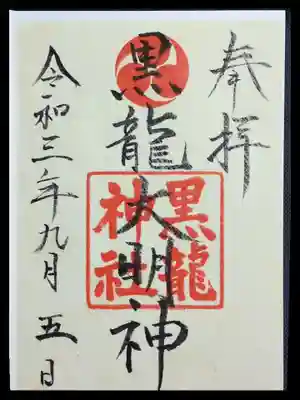 奉拝
黒龍大明神
黒龍
神社
令和三年九月五日